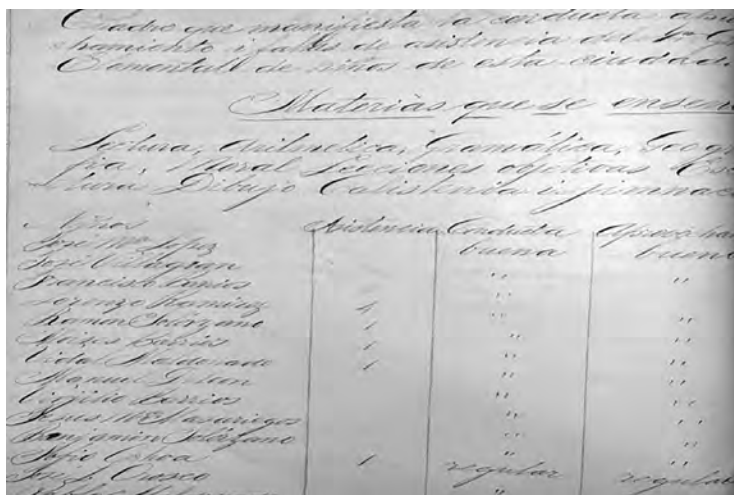 Cadro que manifiesta la conducta apro
chamiento i faltas de asistencia del
Elemental de niños de esta ciudad.
Materias que se enseñ
Lectura, Aritmetica, Gramática, Geogra
fia, Moral Lecciones objetivas Esc
tura Dibujo Calistenia i jimnac
Niños Asistencia Conducta Aprovecham
José Mª Lopez buena buena
José Villagran " "
Francisco Barrios "
Lorenzo Ramirez 4 " "
Ramon Solórzano 1 "
Moises Barrios 1 " "
Vidal Maldonado 1 " "
Manuel "
Virjilio Barrios " "
Jesus Mazariegos " "
Benjamin Solórzano " "
Sofio Ochoa 1 "
José Orosco regular regular